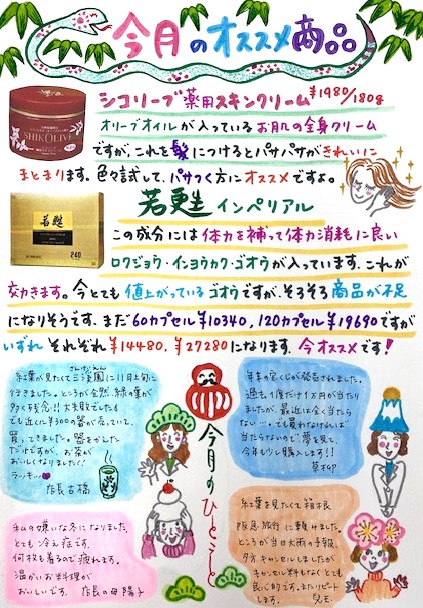 今月のオススメ商品
シコリーブ薬用スキンクリーム ¥1980/180g
SHIKOLIVE
オリーブオイルが入っているお肌の全身クリーム
ですが、これを髪につけるとパサパサがきれいに
まとまります。色々試して、パサつく方にオススメですよ。
若甦 インペリアル
若甦
240
この成分には体力を補って体力消耗に良い
ロクジョウ・インヨウカク・ゴオウが入っています。これが
効きます。今とても値上がっているゴオウですが、そろそろ商品が不足
になりそうです。まだ60カプセル¥10340、120カプセル¥19690ですが
いずれ それぞれ¥14480、¥27280になります。今オススメです!
今月のひとこと
紅葉が見たくて三渓園に11月上旬に
さんけいえん
行きました。ところが全然、緑の葉が
多く残念!!大失敗でした
でも近くに¥300の器が売っていて、
買ってきました。器をかえた
だけですが、お茶が
おいしくなりましたー!
ラッキー
店長 古橋
年末の宝くじが発売されました。
過去1度だけ1万が当たり
ましたが、最近は全く当たら
ない…。でも買わなければ
当たらないので夢を見て、
今年も少し購入します!!
草刈
私の嫌いな冬になりました。
とても冷え症です。
何枚も着るので疲れます。
温かいお料理が
おいしです。店長の母 陽子
紅葉を見たくて箱根
阪急旅行に頼みました。
ところが当日大雨の予報。
夕方キャンセルしましたが
キャンセル料もなくとても
良心的です。またリピート
します。児玉